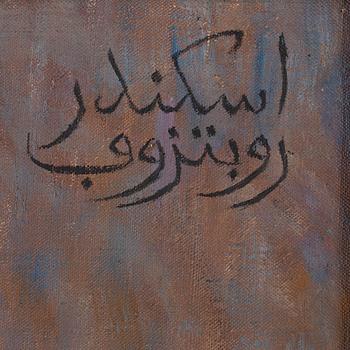 اسكندر
روبتزوف